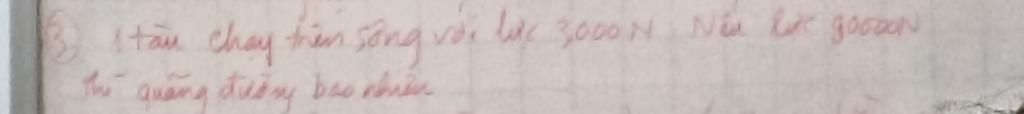 ③ 1 tàu chạy trên sông với lực 3000N Nếu lực 90000N
thì quãng đường bao nhiêu